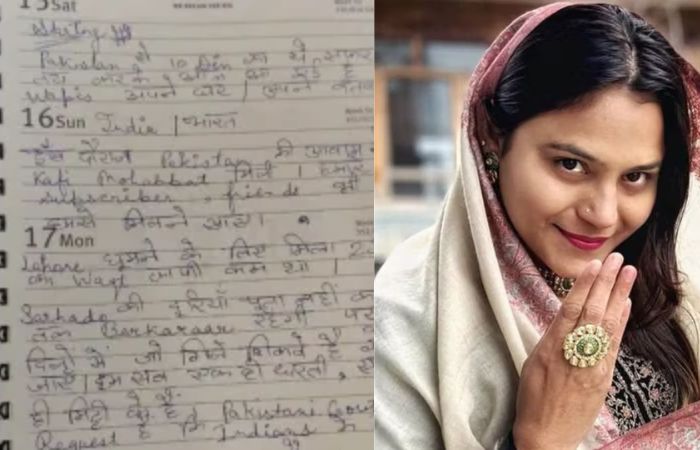 15 Sat
Pakistan से 10 Din का ये सफर
Wapis अपने घर / अपने वतन
16 Sun India / भारत
इस दौरान Pakistan की आवाम से
Kafi Mohabbat मिली । हमारे
subscriber, friends भी
हमसे मिलने आए।
17 Mon
Lahore घूमने के लिए मिला 2
का Waqt काफी कम था।
Sarhado की दूरियाँ पता नहीं कब
तक Barkaraar रहेंगी पर
दिलों में जो गिले शिकवे है वो
जाए। हम सब एक ही धरती,
ही मिट्टी के है। Pakistani Gov
Request है कि Indians के